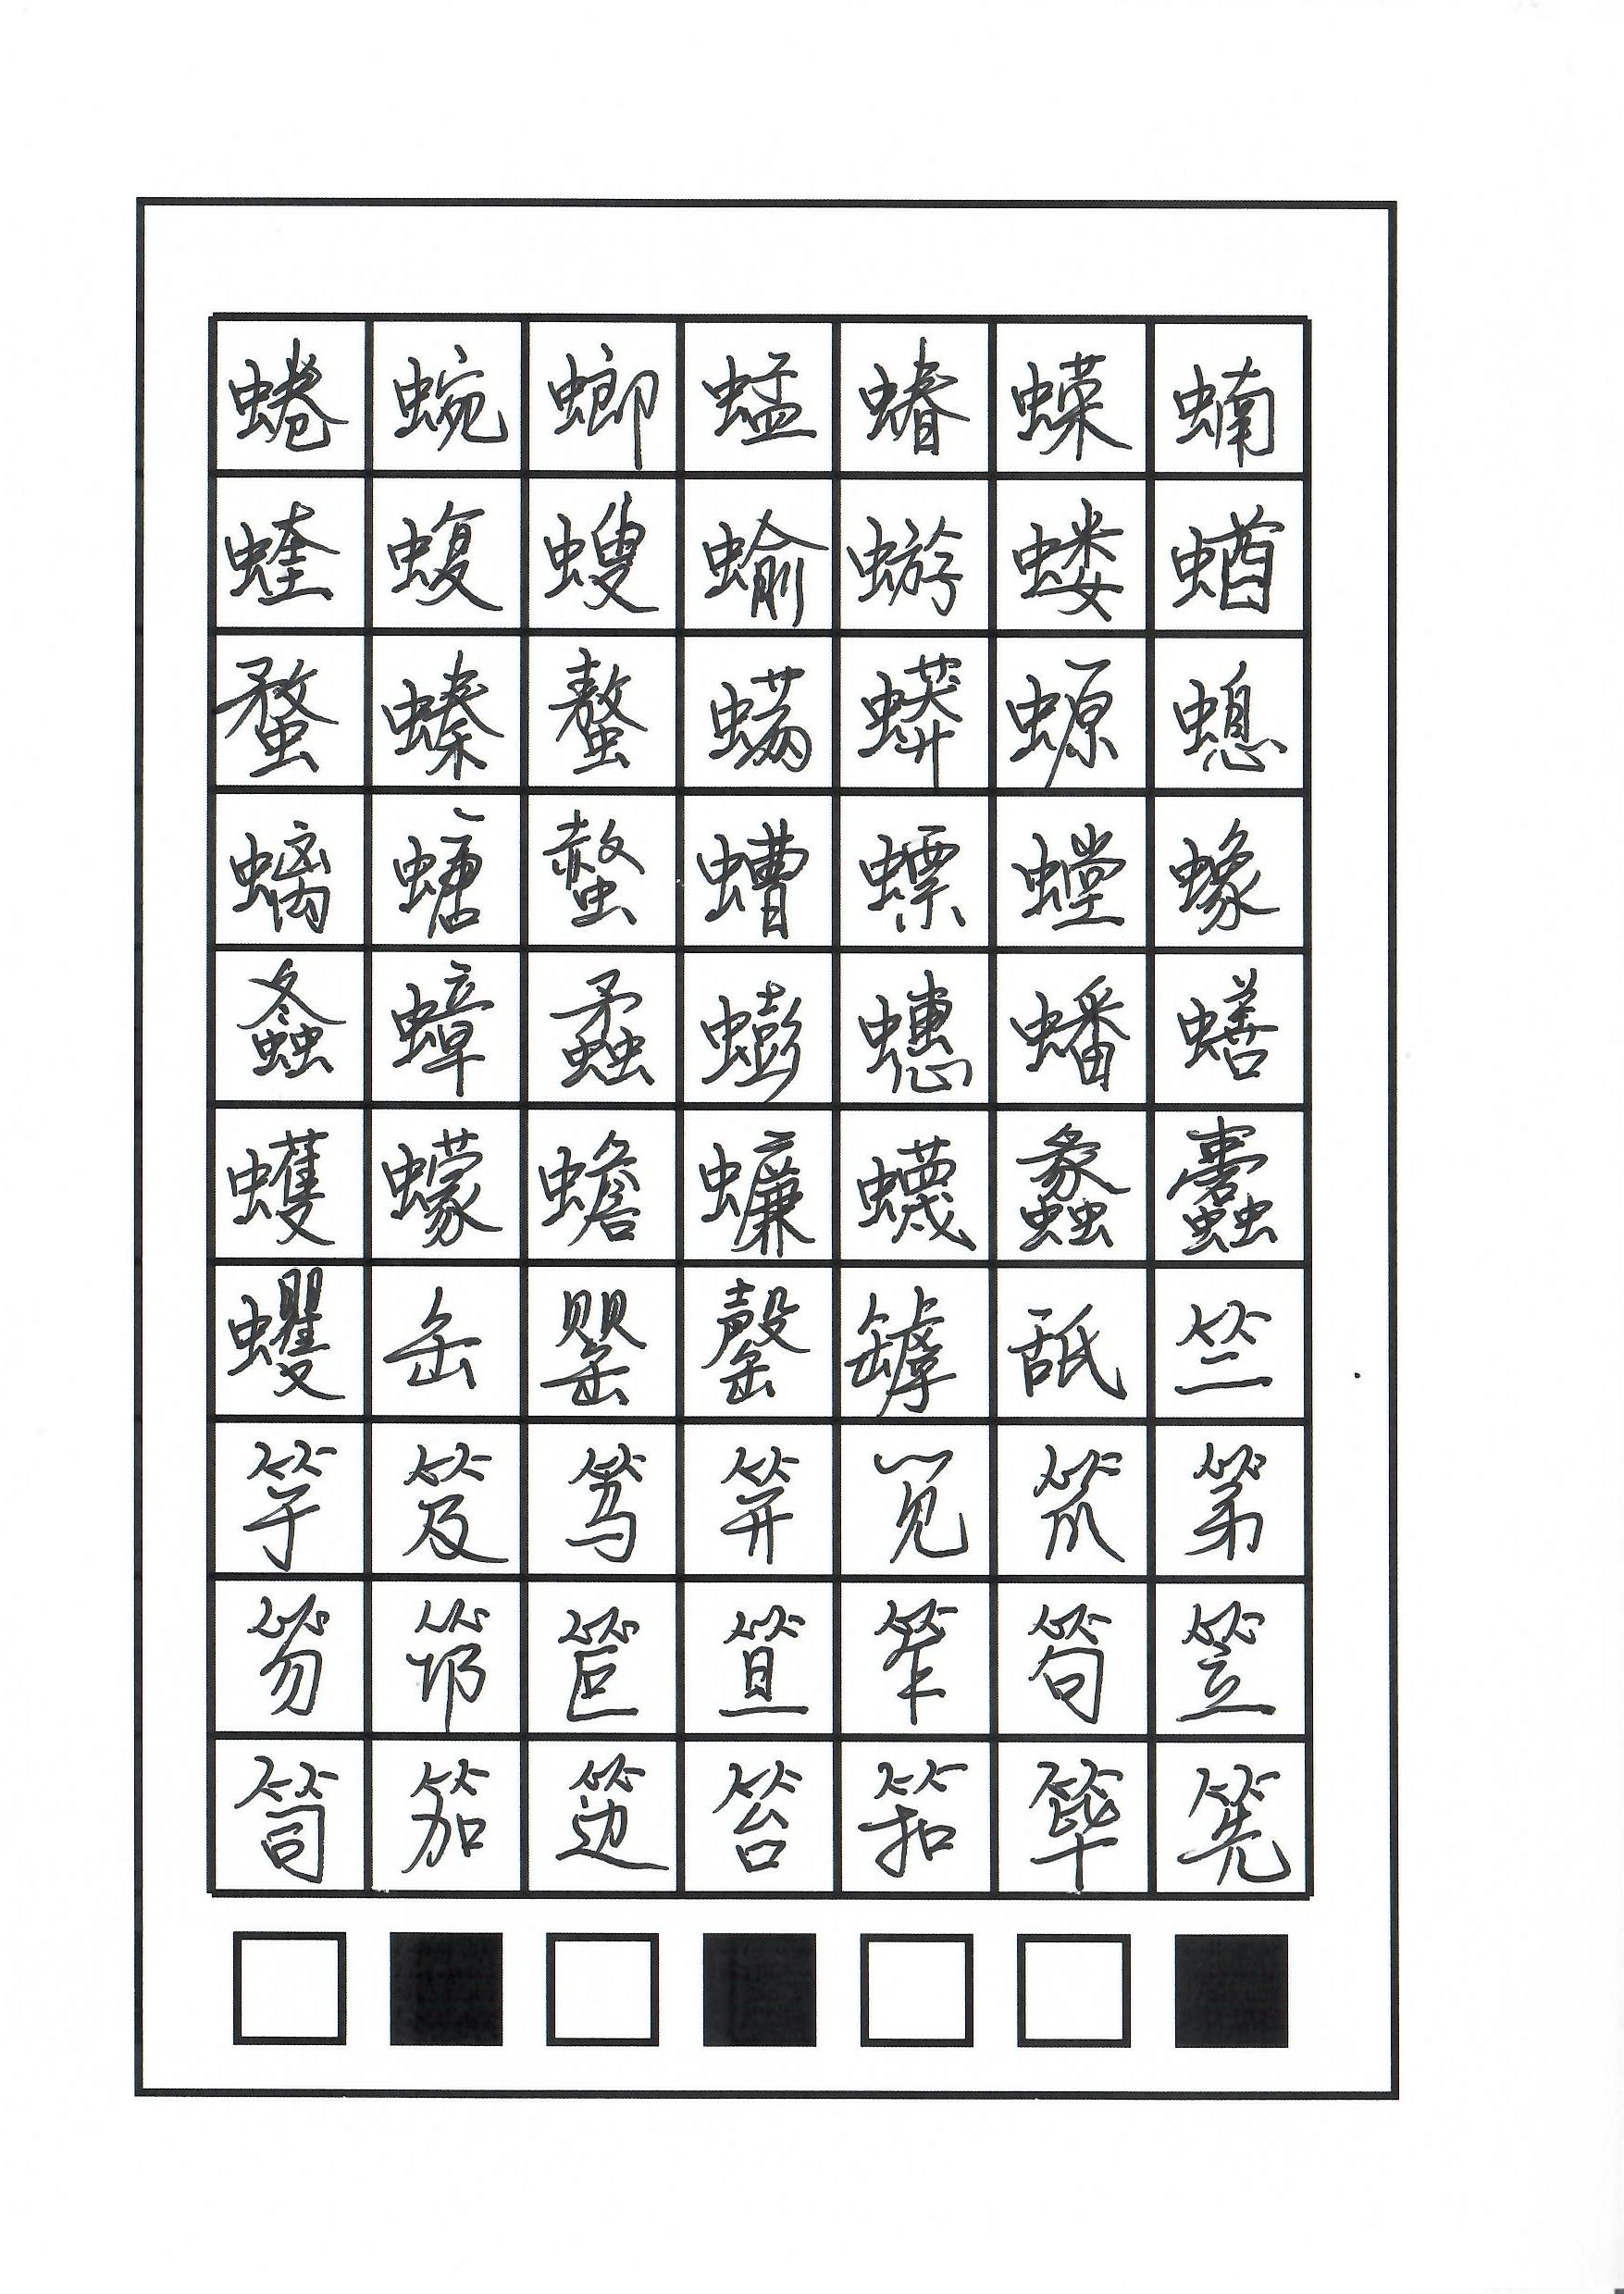 蜷蜿螂蜢蝽蝾蝻
蝰蝮螋蝓蝣蝼蝤
蝥螓螯螨蟒螈螅
螭螗螫蟥螵螳蟓
螽蟑蟊蟛蟪蟠蟮
蠖蠓蟾蠊蠛蠡蠹
蠼缶罂罄罅舐竺
竽笈笃笄笕笊笫
笏筇笸笪笮笱笠
笥笳笾笞筘筚筅